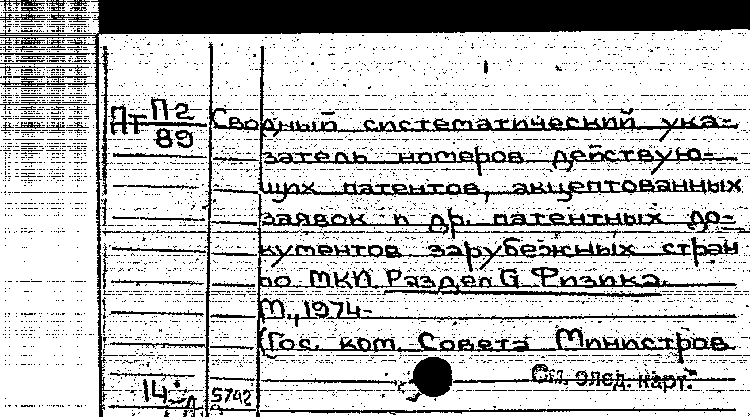 Пт П2
89
Сводный систематический ука-
затель номеров действую-
щих патентов, акцептованных
заявок и др. патентных до-
кументов зарубежных стран
по МКИ. Раздел G Физика.
М., 1974-
(Гос. ком. Совета Министров
См. след. карт.
14
5742